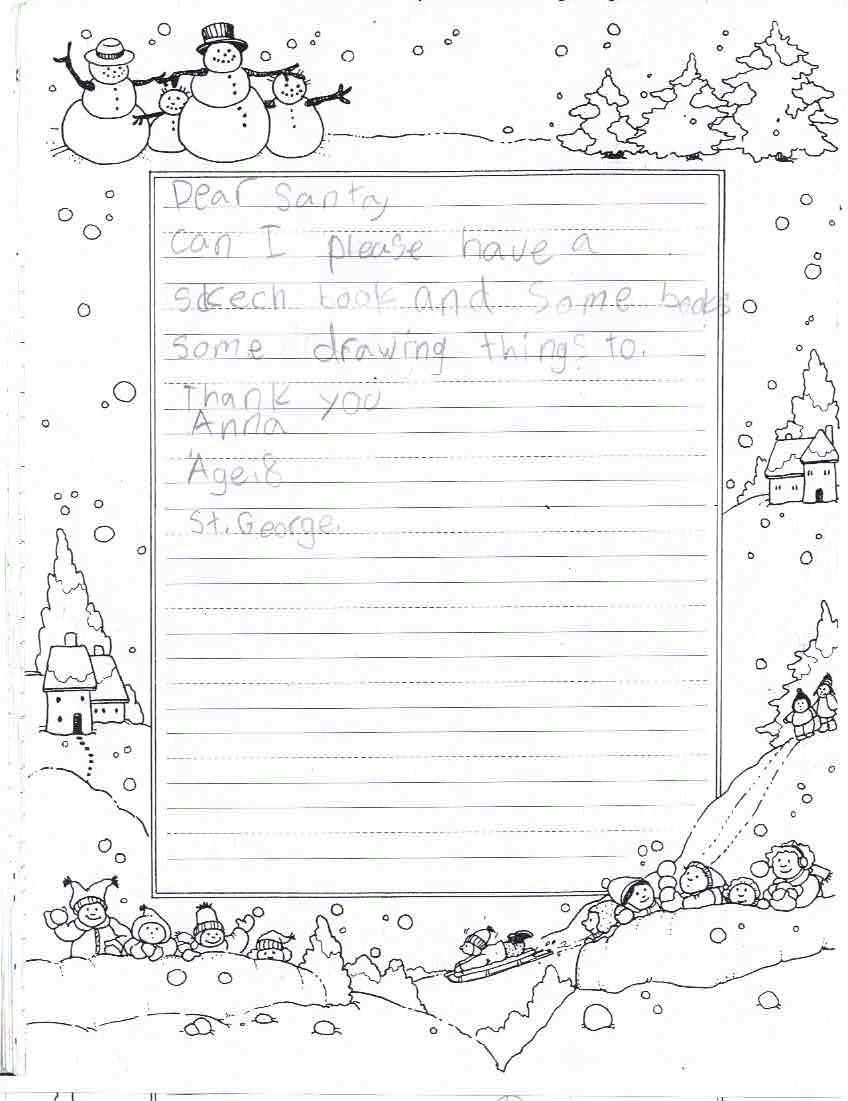 Dear Santa,
Can I please have a
skech book and some books
some drawing things to.
Thank you
Anna
Age.8
St. George.